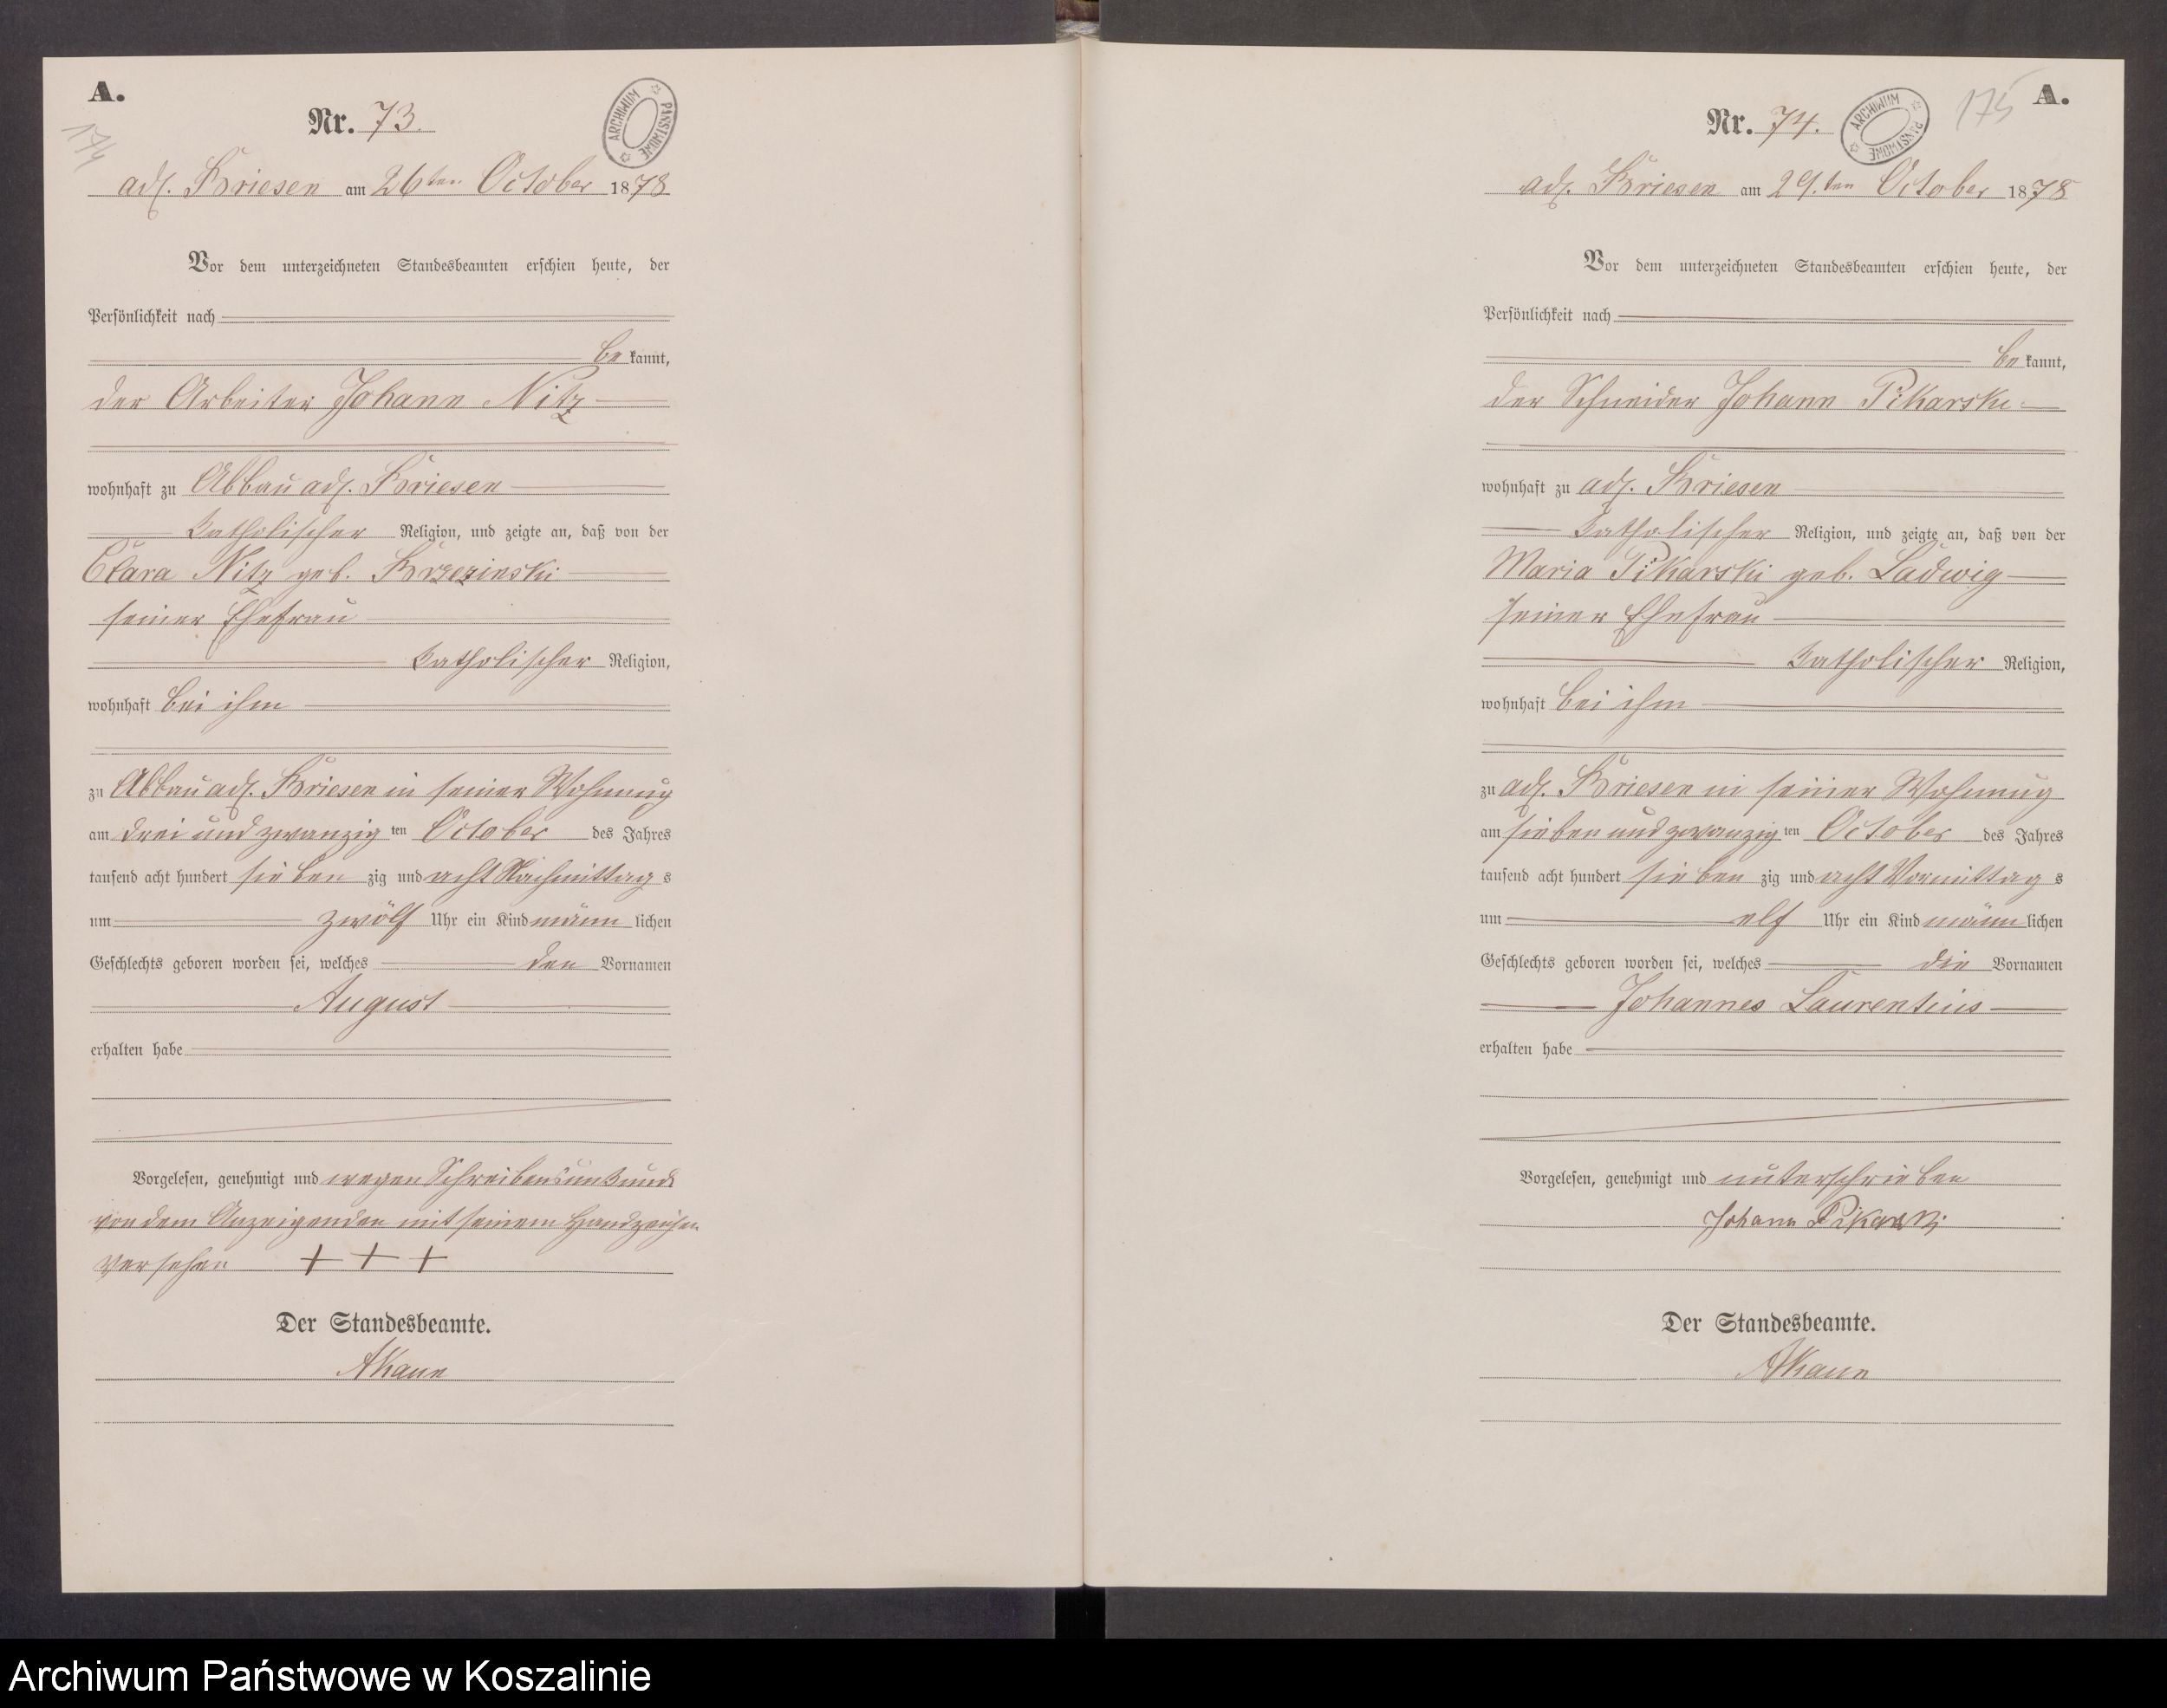 A.
174
Nr. 73.
ARCHIWUM PAŃSTWOWE
adl. Briesen am 26ten October 1878
Vor dem unterzeichneten Standesbeamten erschien heute, der
Persönlichkeit nach
be kannt,
der Arbeiter Johann Nitz
wohnhaft zu Abbau adl. Briesen
katholischer Religion, und zeigte an, daß von der
Clara Nitz geb. Brzezinski
seiner Ehefrau
katholischer Religion,
wohnhaft bei ihm
zu Abbau adl. Briesen in seiner Wohnung
am drei und zwanzig ten October des Jahres
tausend acht hundert sieben zig und acht Nachmittag s
um zwölf Uhr ein Kind männ lichen
Geschlechts geboren worden sei, welches den Vornamen
August
erhalten habe
Vorgelesen, genehmigt und wegen Schreibensunkunde
von dem Anzeigenden mit seinem Handzeichen
versehen + + +
Der Standesbeamte.
175
A.
Nr. 74.
ARCHIWUM PAŃSTWOWE
adl. Briesen am 29.ten October 1878
Vor dem unterzeichneten Standesbeamten erschien heute, der
Persönlichkeit nach
be kannt,
der Schneider Johann Pikarski
wohnhaft zu adl. Briesen
katholischer Religion, und zeigte an, daß von der
Maria Pikarski geb. Ladwig
seiner Ehefrau
katholischer Religion,
wohnhaft bei ihm
zu adl. Briesen in seiner Wohnung
am sieben und zwanzig ten October des Jahres
tausend acht hundert sieben zig und acht Vormittag s
um elf Uhr ein Kind männ lichen
Geschlechts geboren worden sei, welches die Vornamen
Johannes Laurentius
erhalten habe
Vorgelesen, genehmigt und unterschrieben
Johann Pikarski
Der Standesbeamte.
Archiwum Państwowe w Koszalinie